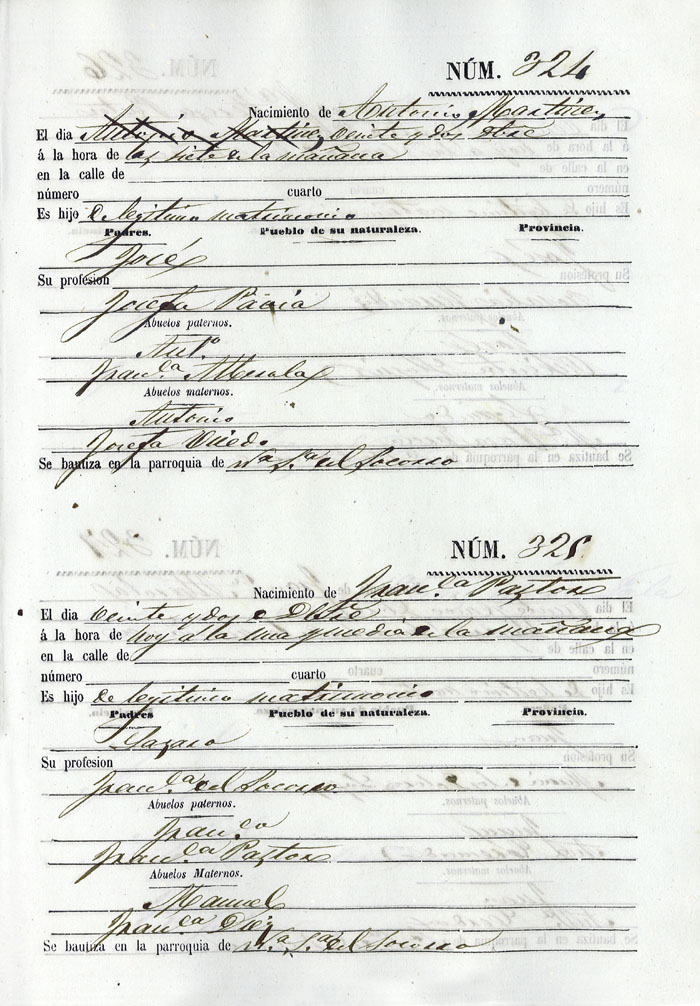 NÚM. 324
Nacimiento de Antonio Martinez
El dia Antonio Martinez veinte y dos Dbre
á la hora de las siete de la mañana
en la calle de
número cuarto
Es hijo de legitimo matrimonio
Padres. Pueblo de su naturaleza. Provincia.
José
Su profesion
Josefa Pavia
Abuelos paternos.
Antº
Franca
Abuelos maternos.
Antonio
Josefa Oviedo
Se bautiza en la parroquia de Nª Sª del Socorro
NÚM. 325
Nacimiento de Franca Paztor
El dia veinte y dos de Dbre
á la hora de hoy a la una y media de la mañana
en la calle de
número cuarto
Es hijo de legitimo matrimonio
Padres Pueblo de su naturaleza. Provincia.
Lazaro
Su profesion
Franca del Socorro
Abuelos paternos.
Franco
Franca Paztor
Abuelos Maternos.
Manuel
Franca Diez
Se bautiza en la parroquia de Nª Sª del Socorro